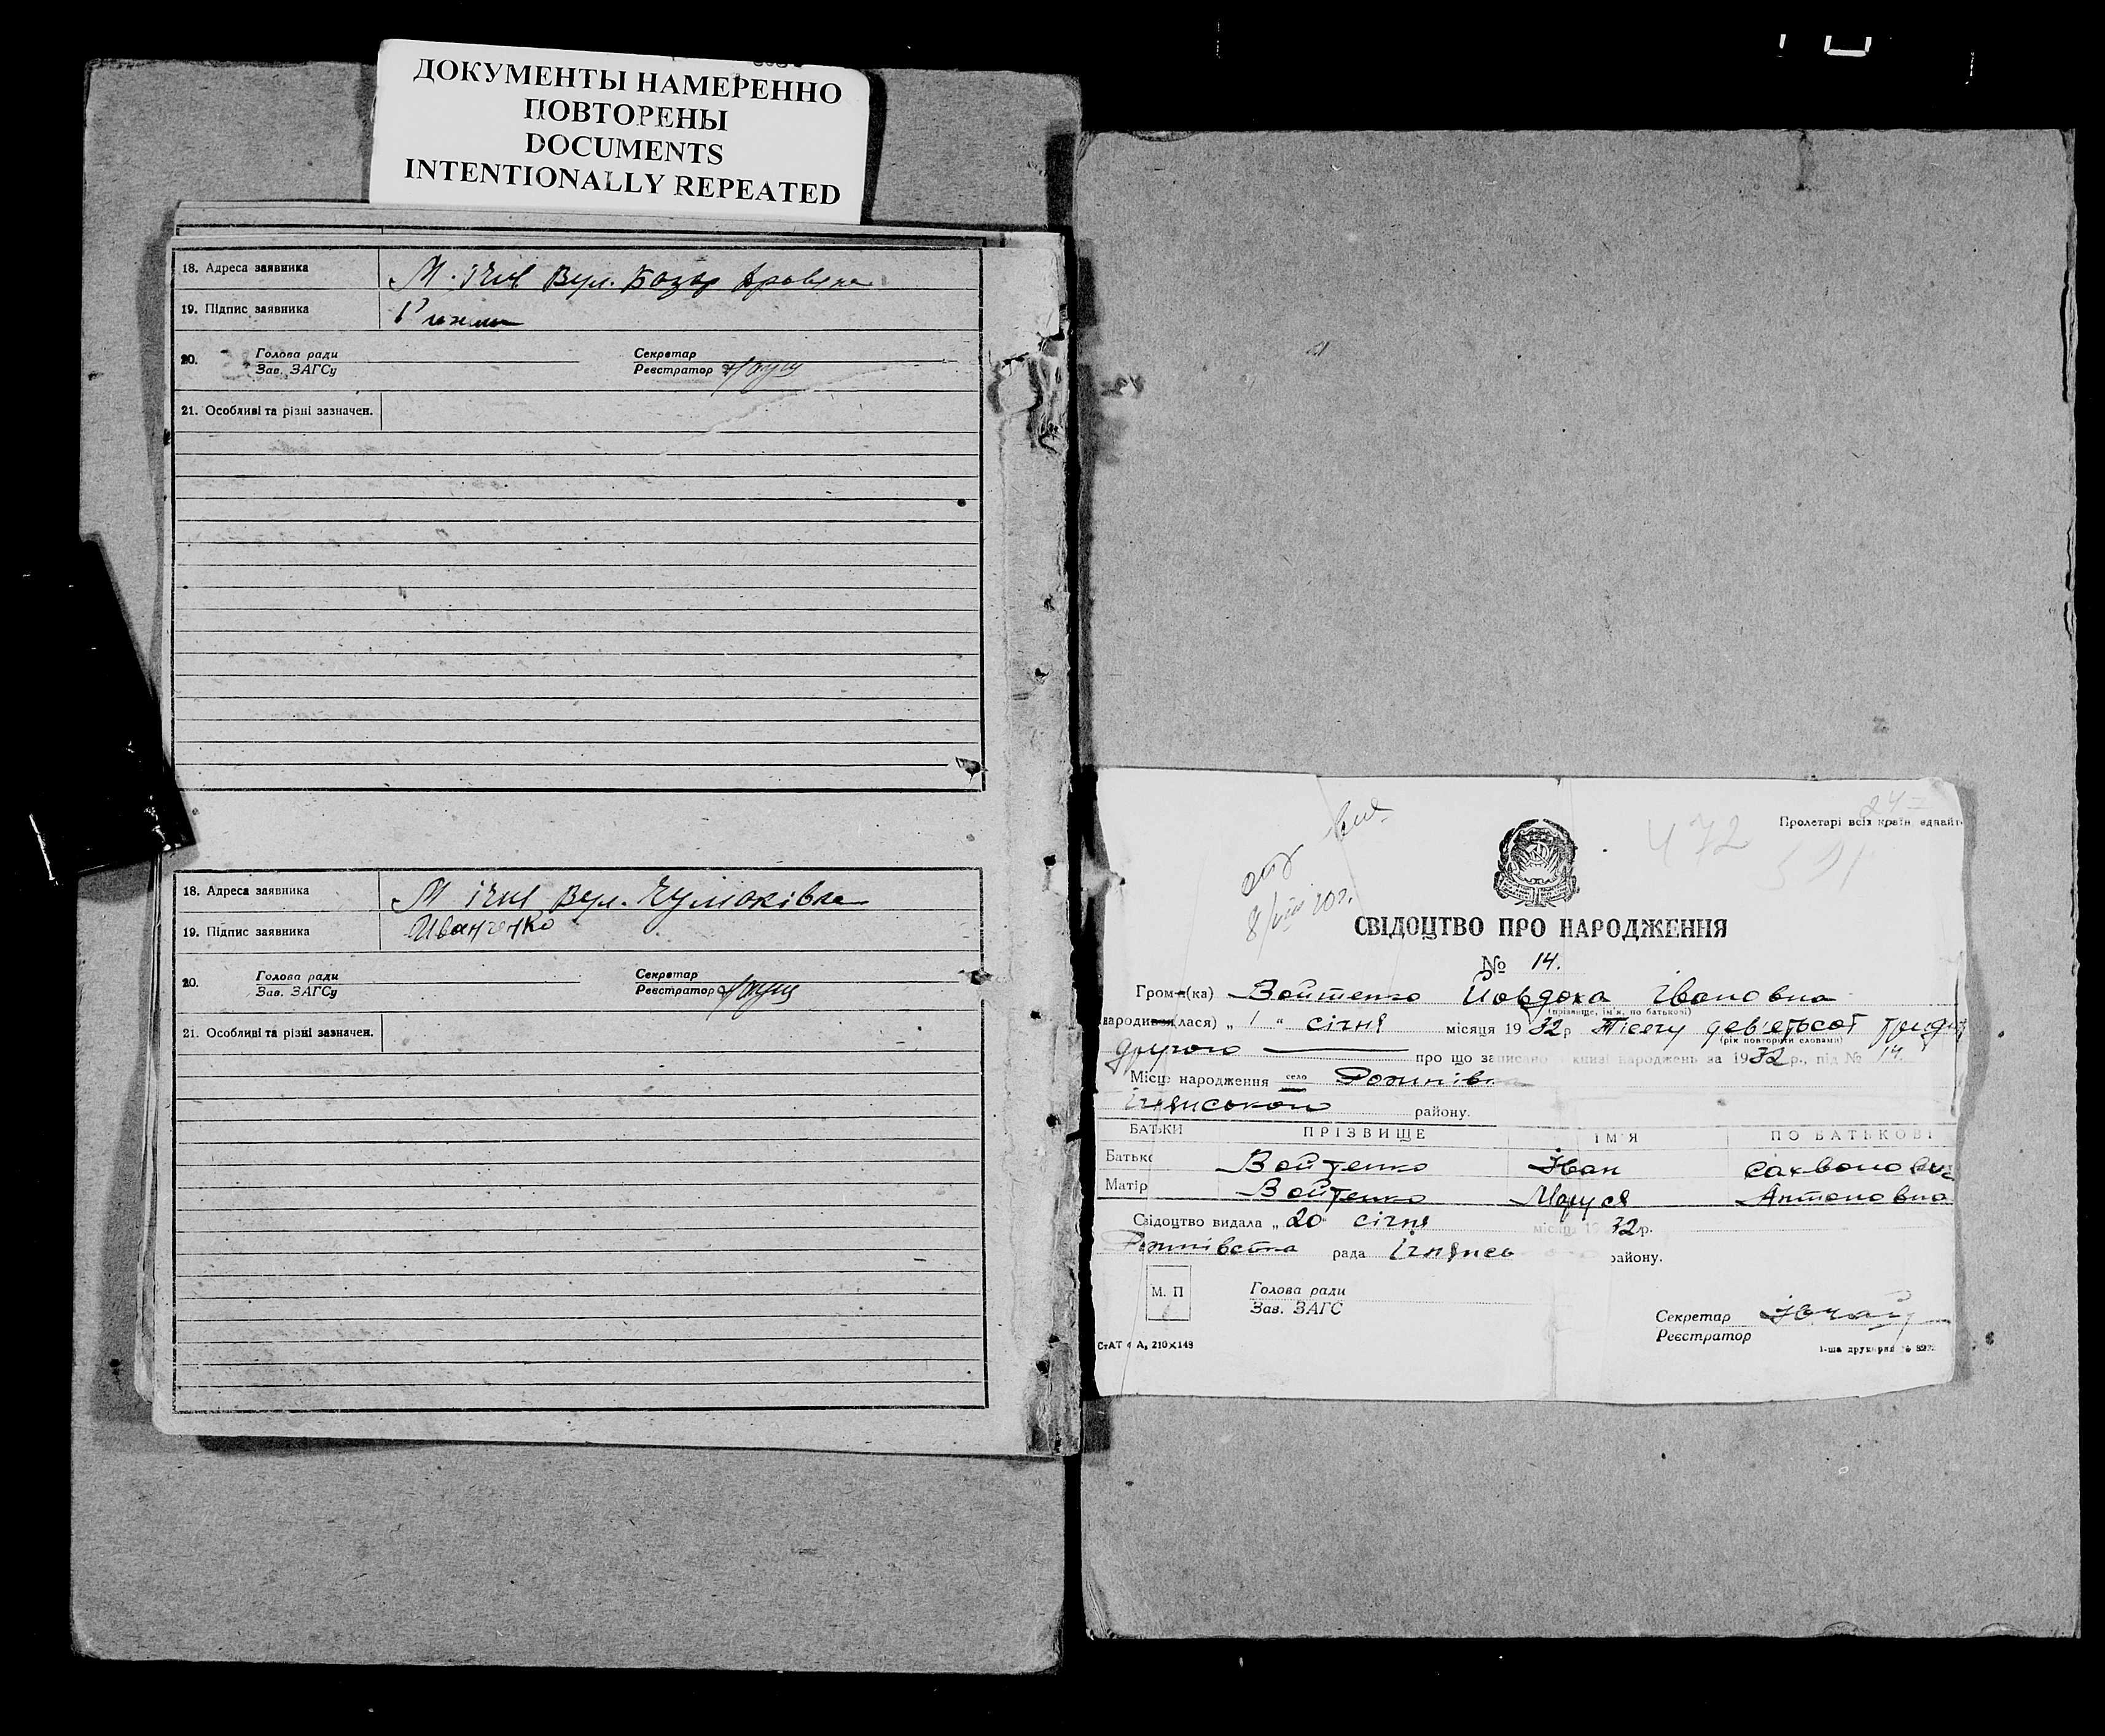 ДОКУМЕНТЫ НАМЕРЕННО
ПОВТОРЕНЫ
DOCUMENTS
INTENTIONALLY REPEATED
18. Адреса заявника М. Ічня Вул. Базар
19. Підпис заявника
20. Голова ради Секретар
Зав. ЗАГСу Реєстратор
21. Особливі та різні зазначен.
18. Адреса заявника М Ічня Вул. Чумаківка
19. Підпис заявника Иванченко
20. Голова ради Секретар
Зав. ЗАГСу Реєстратор
21. Особливі та різні зазначен.
472
Пролетарі всіх країн, єднайт
СВІДОЦТВО ПРО НАРОДЖЕННЯ
№ 14.
Гром-н(ка) Войтенко Йовдоха Івановна
(прізвище, ім'я, по батькові)
народився(лася) „ 1 " січня місяця 1932 р Тисячу дев'ятьсот тридц
(рік повторити словами)
другого про що записано книзі народжень за 1932 р., під № 14.
Місце народження село Рожнівка
Ічнянського району.
БАТЬКИ ПРІЗВИЩЕ ІМ'Я ПО БАТЬКОВІ
Батько Войтенко Іван
Матір Войтенко Маруся Антоновна
Свідоцтво видала „ 20 " січня місяця 1932 р.
Рожнівська рада Ічнянсь району.
М. П
Голова ради
Зав. ЗАГС
Секретар
Реєстратор
СтАТ ф А₅ 210×148
1-ша друкарня